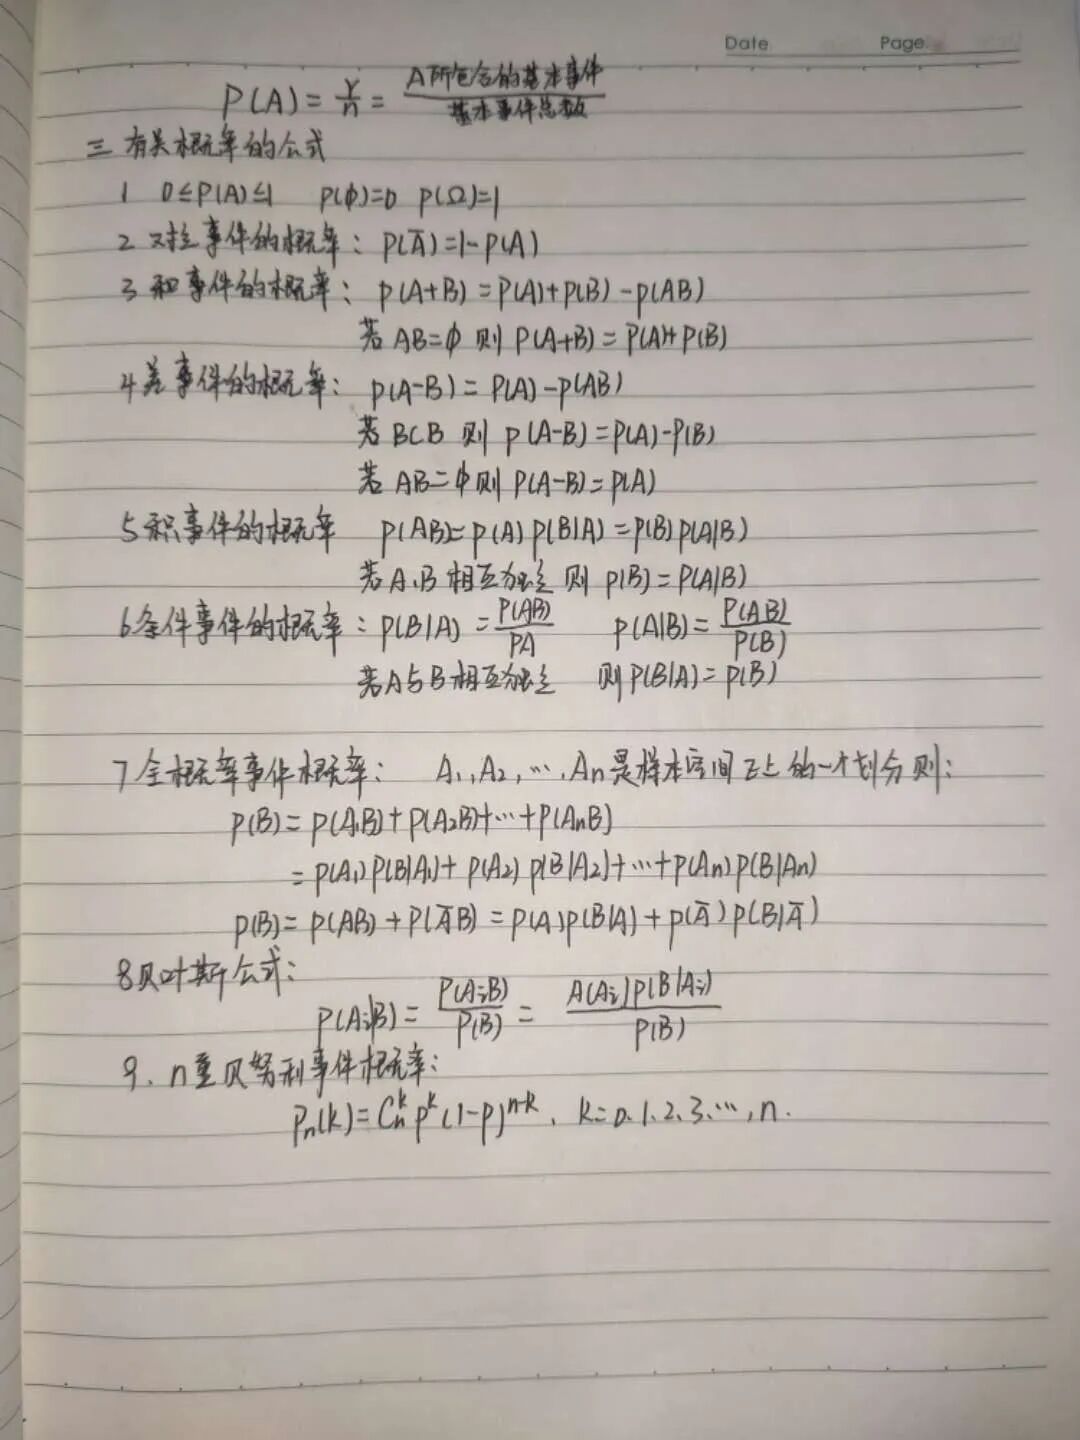 Date Page
P(A) = r/n = A所包含的基本事件/基本事件总数
三 有关概率的公式
1 0≤P(A)≤1 P(ϕ)=0 P(Ω)=1
2 对立事件的概率: P(A̅)=1-P(A)
3 和事件的概率: P(A+B)=P(A)+P(B)-P(AB)
若 AB=ϕ 则 P(A+B)=P(A)+P(B)
4 差事件的概率: P(A-B)=P(A)-P(AB)
若 B⊂B 则 P(A-B)=P(A)-P(B)
若 AB=ϕ 则 P(A-B)=P(A)
5 积事件的概率 P(AB)=P(A)P(B|A)=P(B)P(A|B)
若A、B 相互独立 则 P(B)=P(A|B)
6 条件事件的概率: P(B|A)=P(AB)/PA P(A|B)=P(AB)/P(B)
若A与B相互独立 则P(B|A)=P(B)
7 全概率事件概率: A₁,A₂,⋯,An是样本空间 上的一个划分则:
P(B)=P(A₁B)+P(A₂B)+⋯+P(AnB)
=P(A₁)P(B|A₁)+P(A₂)P(B|A₂)+⋯+P(An)P(B|An)
P(B)=P(AB)+P(A̅B)=P(A)P(B|A)+P(A̅)P(B|A̅)
8 贝叶斯公式:
P(Aᵢ|B)=P(AᵢB)/P(B)=A(Aᵢ)P(B|Aᵢ)/P(B)
9. n重贝努利事件概率:
Pn(k)=Cₙᵏpᵏ(1-p)ⁿ⁻ᵏ, k=0.1.2.3.⋯,n.